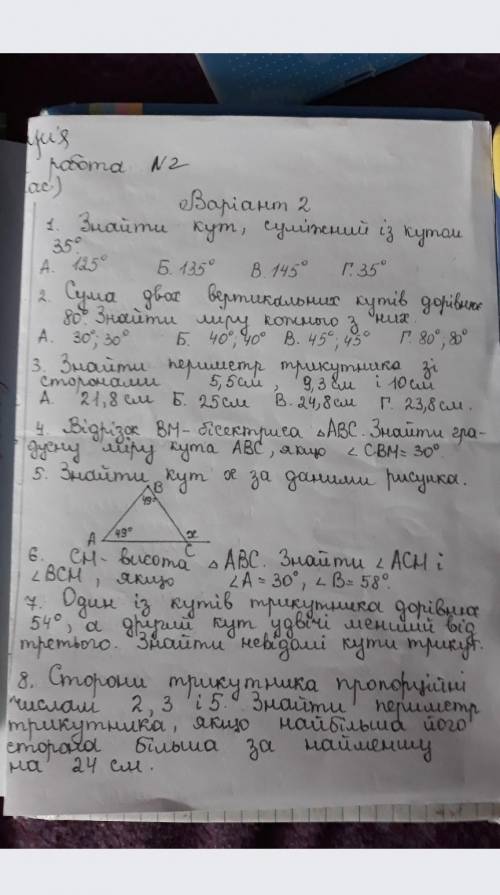 ція
робота №2
час)
Варіант 2
1. Знайти кут, суміжний із кутом
35°.
А. 125° Б. 135° В. 145° Г. 35°
2. Сума двох вертикальних кутів дорівнює
80°. Знайти міру кожного з них.
А. 30°; 30° Б. 40°, 40° В. 45°; 45° Г. 80°; 80°
3. Знайти периметр трикутника зі
сторонами 5,5см, 9,3см і 10см
А. 21,8см Б. 25см В. 24,8см Г. 23,8см.
4. Відрізок ВМ-бісектриса △АВС. Знайти гра-
дусну міру кута АВС, якщо ∠СВМ=30°.
5. Знайти кут x за даними рисунка.
В
49°
А 49° С x
6. СН-висота △АВС. Знайти ∠АСН і
∠ВСН, якщо ∠А=30°, ∠В=58°.
7. Один із кутів трикутника дорівнює
54°, а другий кут удвічі менший від
третього. Знайти невідомі кути трикут.
8. Сторони трикутника пропорційні
числам 2, 3 і 5. Знайти периметр
трикутника, якщо найбільша його
сторона більша за найменшу
на 24 см.